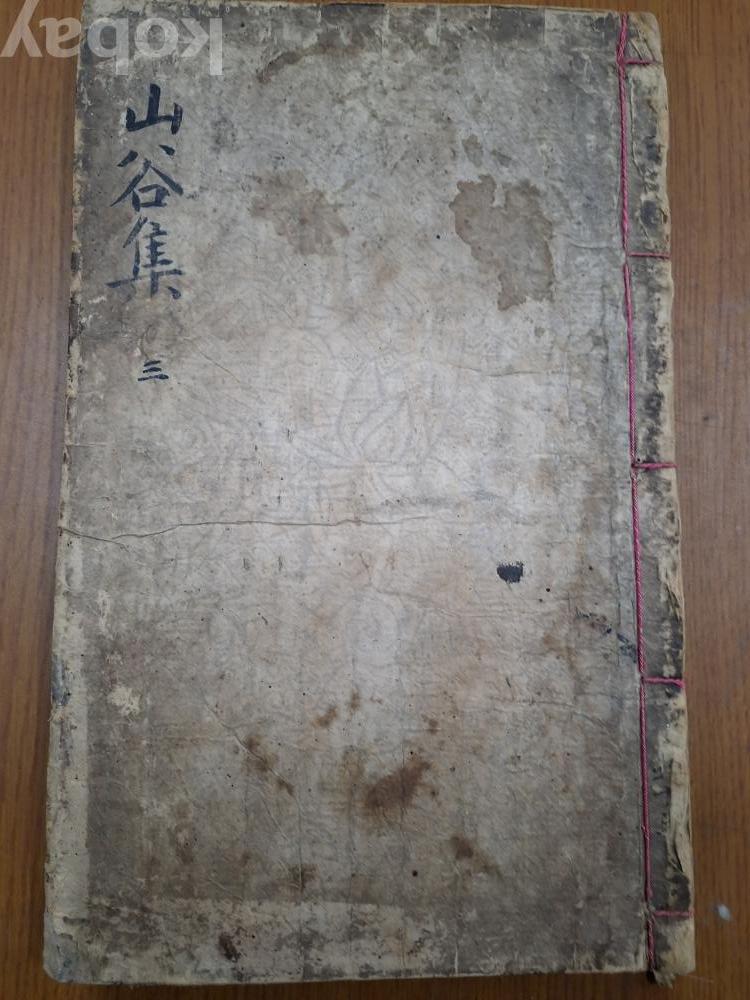 kobay
山谷集
三